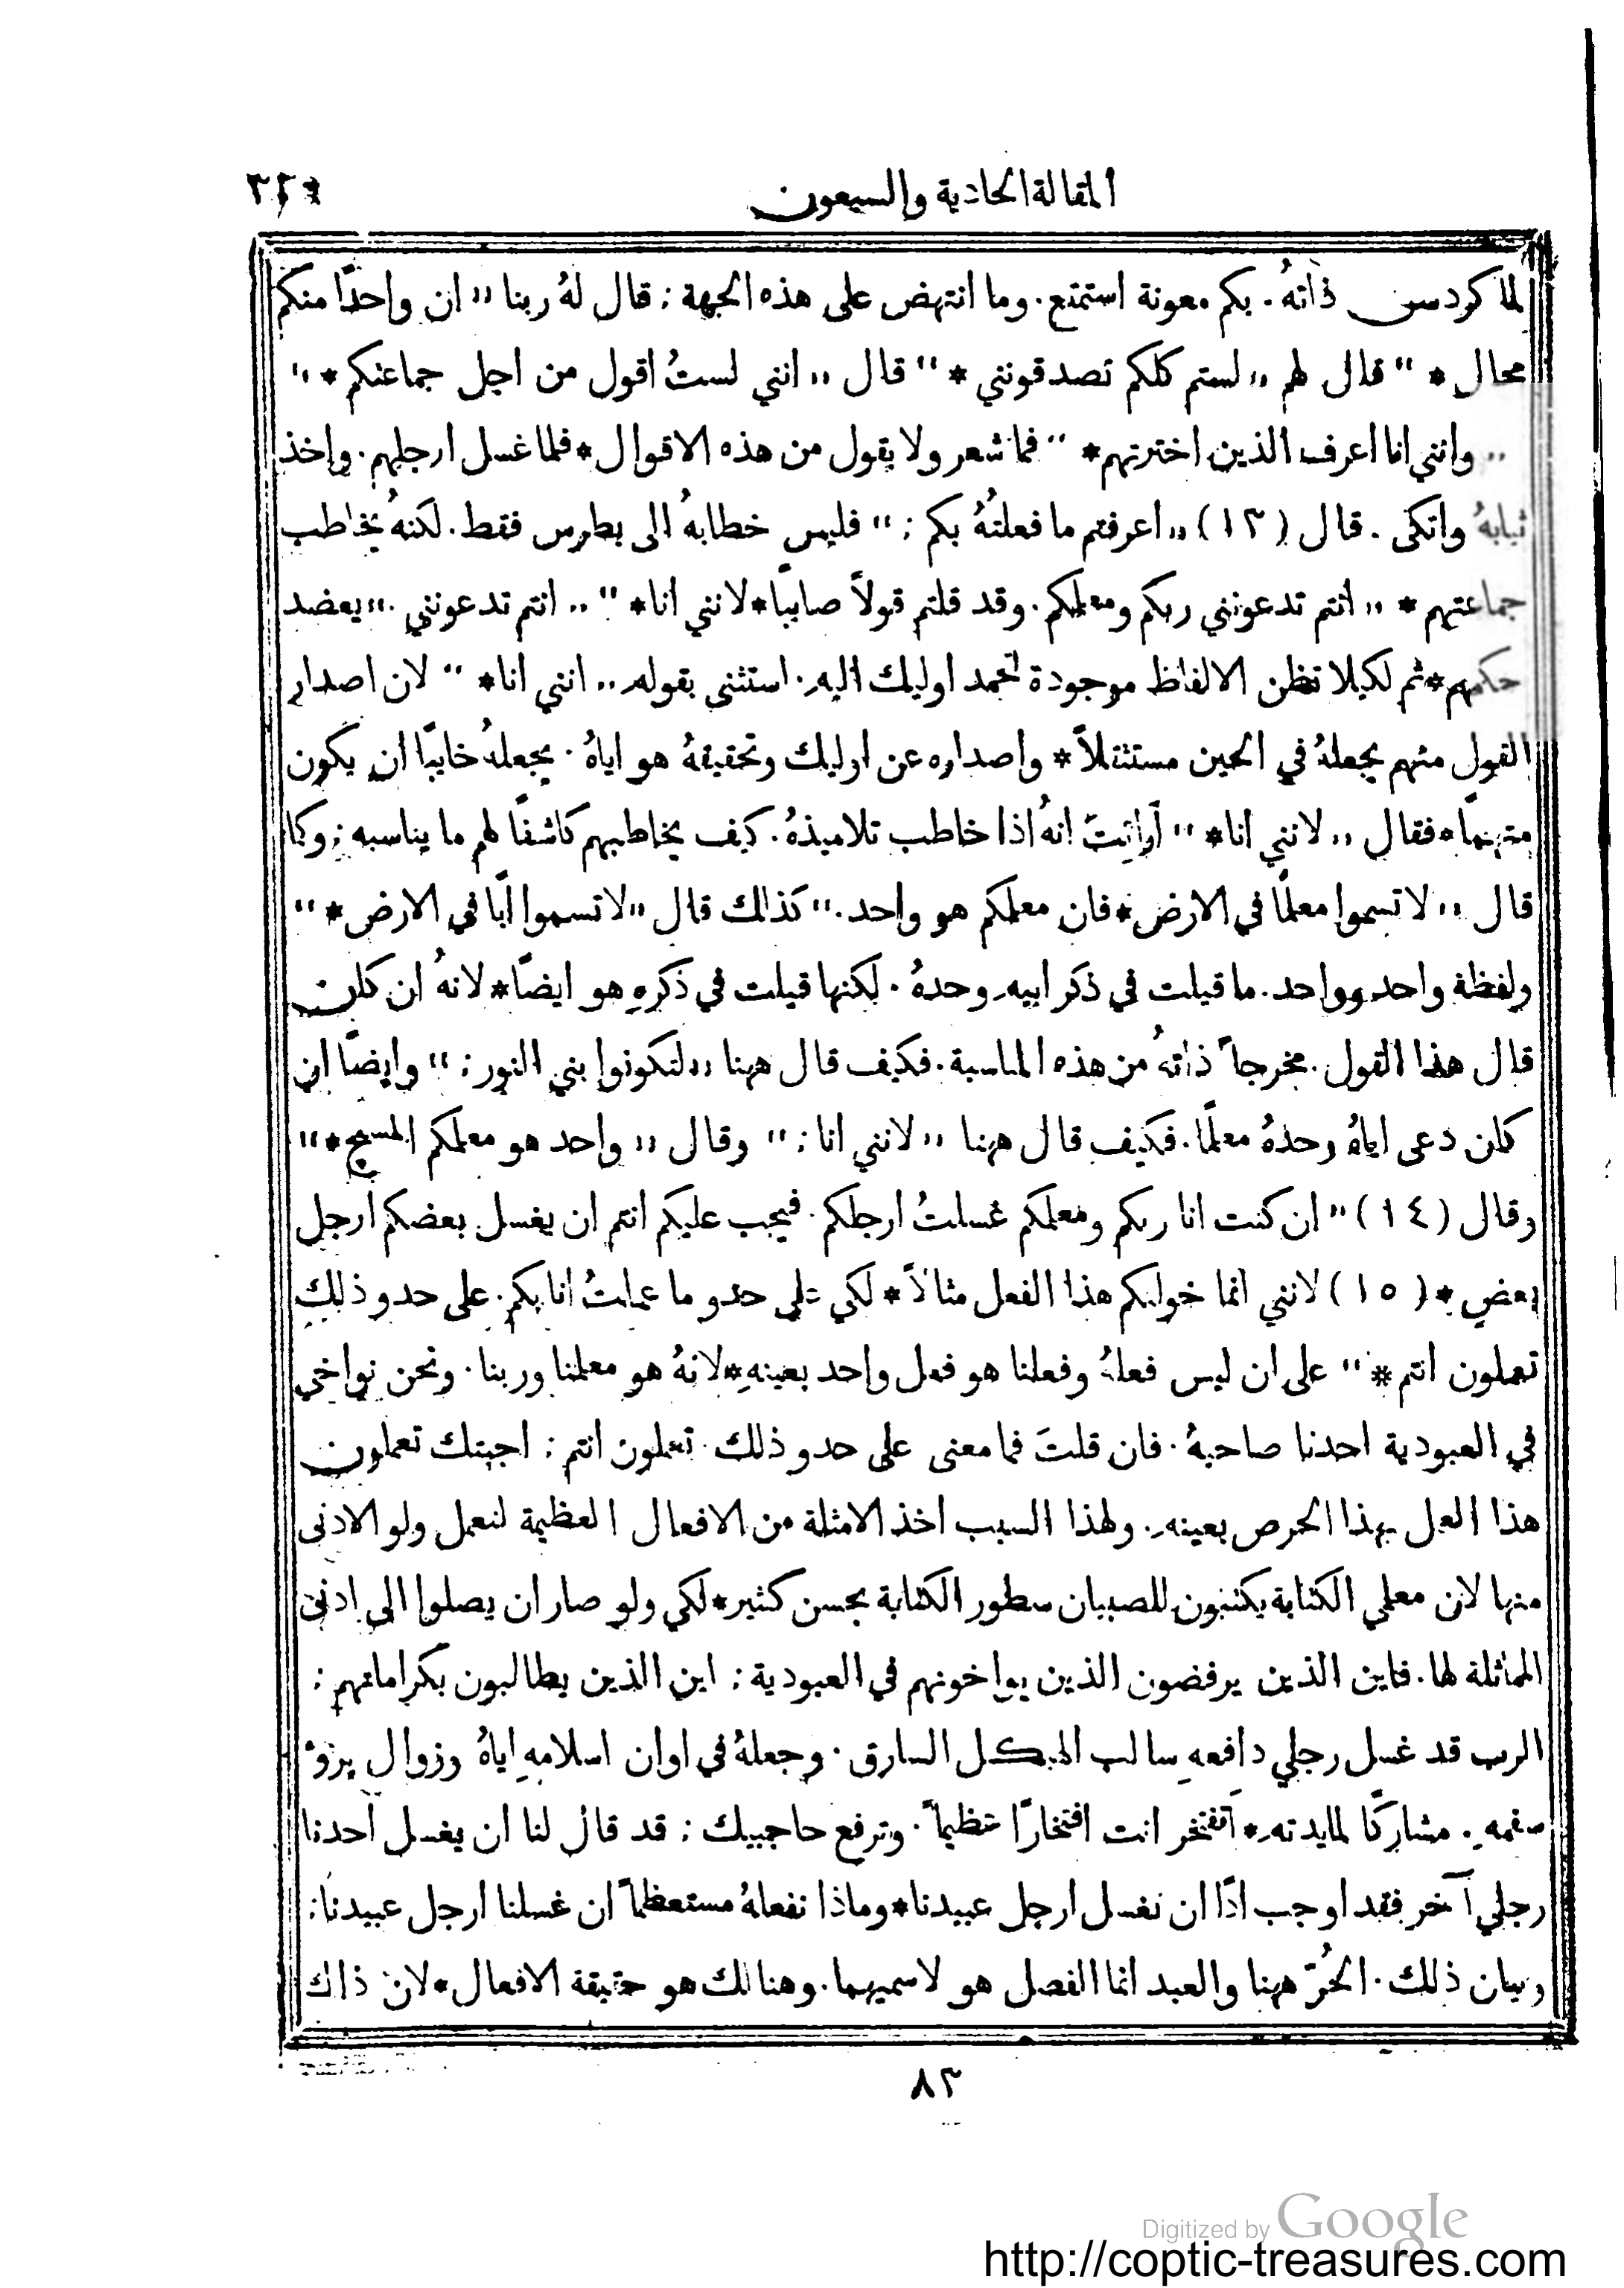 المقالة الحادية والسبعون
لما كردس ذاتهُ. بكم معونة استمتع. وما انتهض على هذه الجهة ; قال لهُ ربنا ,, ان واحدًا منكم
محال * " قال لهم ,, لستم كلكم تصدقونني * " قال ,, انني لستُ اقول من اجل جماعتكم * "
,, وانني انا اعرف الذين اخترتهم * " فما شعر ولا يقول من هذه الاقوال * فلما غسل ارجلهم. واخذ
ثيابهُ واتكى. قال (١٣) ,, اعرفتم ما فعلتهُ بكم ; " فليس خطابهُ الى بطرس فقط. لكنهُ يخاطب
جماعتهم * ,, انتم تدعونني ربكم ومعلمكم. وقد قلتم قولاً صايبًا * لانني انا * " ,, انتم تدعونني ." يعضد
حكمهم * ثم لكيلا تظن الالفاظ موجودة لحمد اوليك اليهِ. استثنى بقولهِ ,, انني انا * " لان اصدار
القول منهم يجعلهُ في الحين مستثقلاً * واصداره عن اوليك وتحقيقهُ هو اياهُ. يجعلهُ خايبًا ان يكون
متهمًا * فقال ,, لانني انا * " أرايتَ انهُ اذا خاطب تلاميذهُ. كيف يخاطبهم كاشفًا لهم ما يناسبه ; وكما
قال ,, لا تسموا معلمًا في الارض * فان معلمكم هو واحد. " كذالك قال ,, لا تسموا ابًا في الارض * "
ولفظة واحد وواحد. ما قيلت في ذكر ابيهِ وحدهُ. لكنها قيلت في ذكرهِ هو ايضًا * لانهُ ان كان
قال هذا القول. مخرجاً ذاتهُ من هذه المناسبة. فكيف قال ههنا ,, لتكونوا بني النور ; " وايضًا ان
كان دعى اياهُ وحدهُ معلمًا. فكيف قال ههنا ,, لانني انا ; " وقال ,, واحد هو معلمكم المسيح * "
وقال (١٤) ,, ان كنت انا ربكم ومعلمكم غسلتُ ارجلكم. فيجب عليكم انتم ان يغسل بعضكم ارجل
بعضٍ * (١٥) لانني انما خولتكم هذا الفعل مثالاً * لكي على حدو ما عملتُ انا بكم. على حدو ذلك
تعملون انتم * " على ان ليس فعلهُ وفعلنا هو فعل واحد بعينهِ * لانهُ هو معلمنا وربنا. ونحن نواخي
في العبودية احدنا صاحبهُ. فان قلتَ فما معنى على حدو ذلك تعملون انتم ; اجبتك تعملون
هذا العمل بهذا الحرص بعينهِ. ولهذا السبب اخذ الامثلة من الافعال العظيمة لنعمل ولو الادنى
منها لان معلمي الكتابة يكتبون للصبيان سطور الكتابة بحسن كثير * لكي ولو صار ان يصلوا الى ادنى
المماثلة لها. فاين الذين يرفضون الذين يواخونهم في العبودية ; اين الذين يطالبون بكراماتهم ;
الرب قد غسل رجلي دافعهِ سالب الهيكل السارق. وجعلهُ في اوان اسلامهِ اياهُ وزوال برؤ
سقمهِ. مشاركًا لمايدتهِ * أتفتخر انت افتخارًا عظيماً. وترفع حاجبيك ; قد قال لنا ان يغسل أحدنا
رجلي آخر فقد اوجب اذًا ان نغسل ارجل عبيدنا * وماذا نفعلهُ مستعظماً ان غسلنا ارجل عبيدنا ;
وبيان ذلك. الحُرّ ههنا والعبد انما الفصل هو لاسميهما. وهنالك هو حقيقة الافعال * لان ذاك
٨٣
Digitized by Google
http://coptic-treasures.com